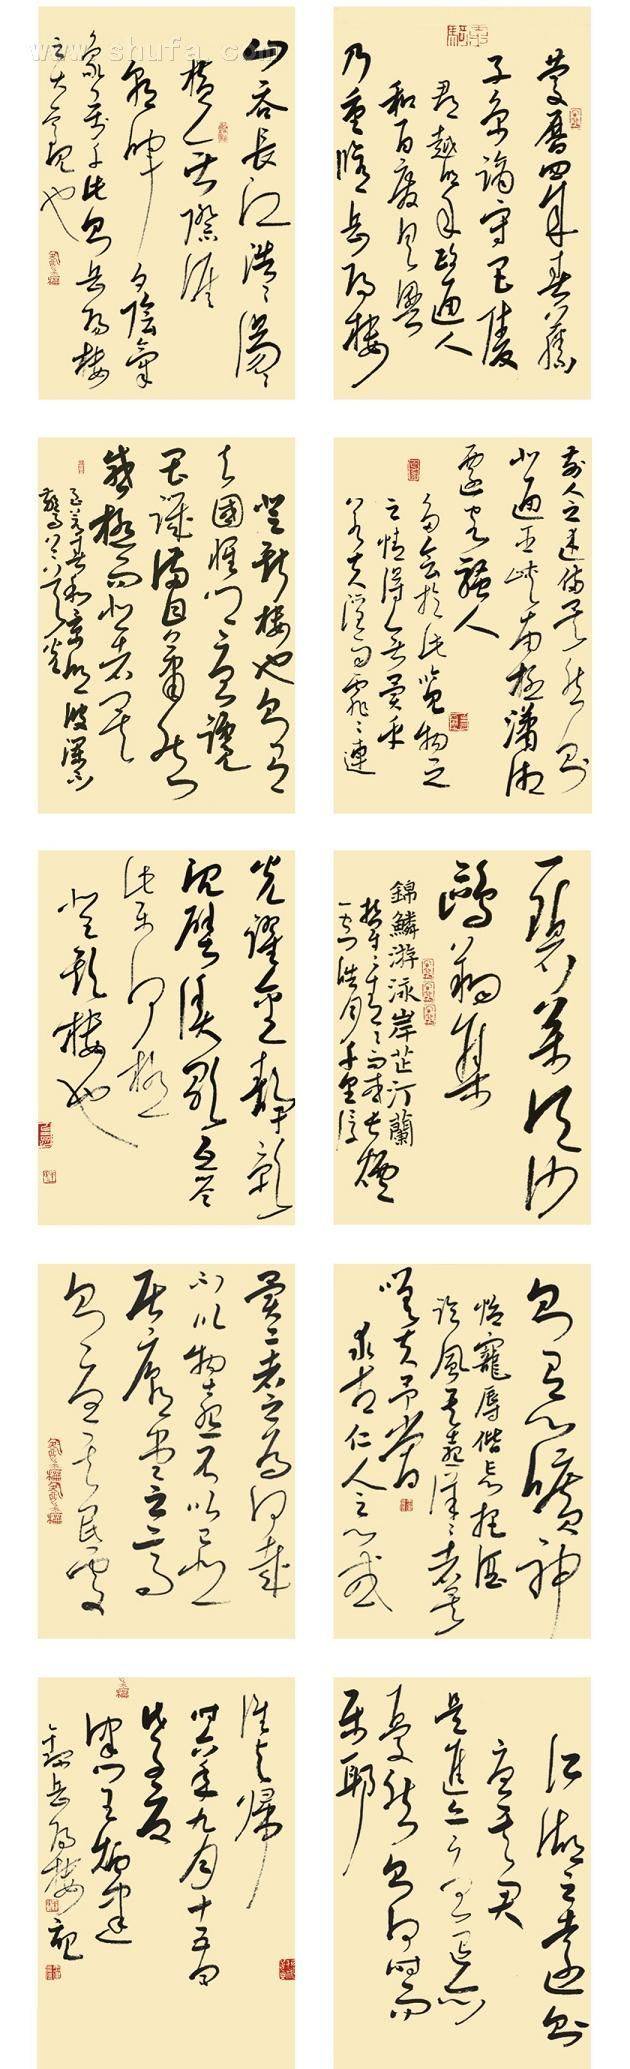 慶曆四年春滕
子京謫守巴陵
郡越明年政通人
和百廢具興
乃重修岳陽樓
山吞長江浩〻湯〻
橫無際涯
朝暉夕陰氣
象萬千此則岳陽樓
之大觀也
前人之述備矣然則
北通巫峽南極瀟湘
遷客騷人
多會於此覽物之
之情得無異乎
若夫淫雨霏〻連
登斯樓也則有
去國懷鄉憂讒
畏譏滿目蕭然
感極而悲者矣
至若春和景明波瀾不
驚上下天光
一碧萬頃沙
鷗翔集
錦鱗游泳岸芷汀蘭
郁〻青〻而或長煙
一空皓月千里浮
光躍金靜影
沉璧漁歌互答
此樂何極
登斯樓也
則有心曠神
怡寵辱偕忘把酒
臨風其喜洋〻者矣
嗟夫予嘗
求古仁人之心或
異二者之為何哉
不以物喜不以己悲
居廟堂之高
則憂其民處
江湖之遠則
憂其君
是進亦憂退亦
憂然則何時而
樂耶
誰與歸
時六年九月十五日
岳陽樓記
www.shufa.com